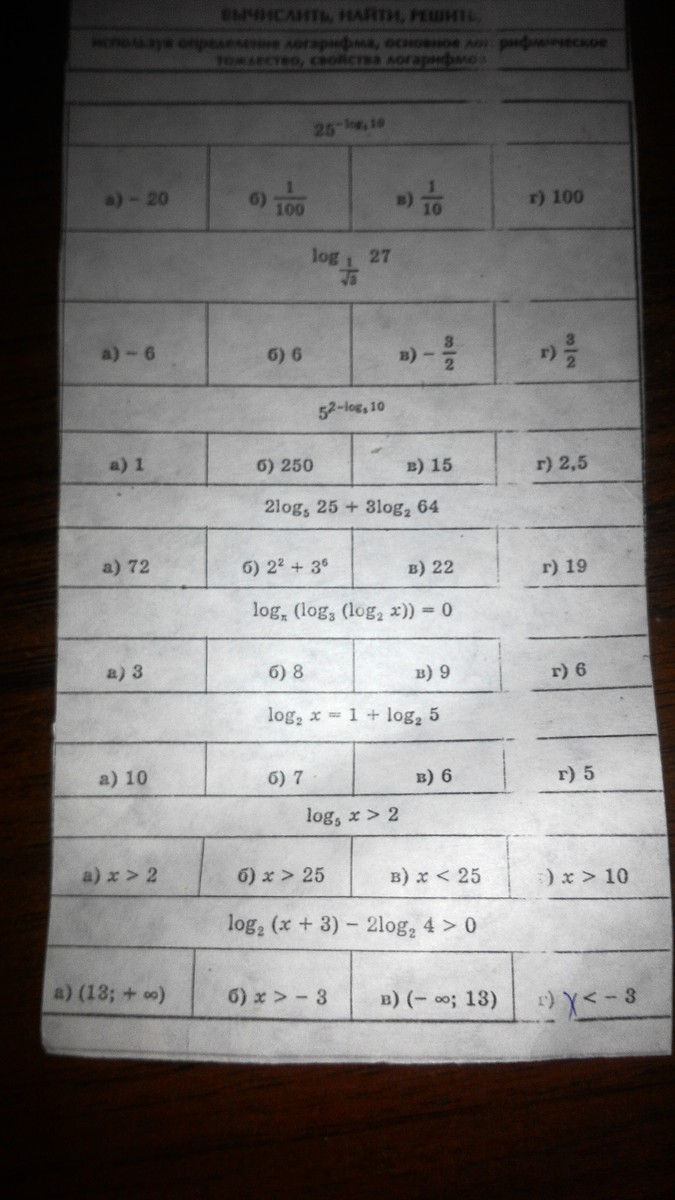 ВЫЧИСЛИТЬ, НАЙТИ, РЕШИТЬ,
используя определение логарифма, основное логарифмическое
тождество, свойства логарифмов
25^{-log₅10}
а) – 20 б) 1/100 в) 1/10 г) 100
log_{1/√3} 27
а) – 6 б) 6 в) – 3/2 г) 3/2
5^{2–log₅10}
а) 1 б) 250 в) 15 г) 2,5
2log₅ 25 + 3log₂ 64
а) 72 б) 2² + 3⁶ в) 22 г) 19
log_π (log₃ (log₂ x)) = 0
а) 3 б) 8 в) 9 г) 6
log₂ x = 1 + log₂ 5
а) 10 б) 7 в) 6 г) 5
log₅ x > 2
а) x > 2 б) x > 25 в) x < 25 ) x > 10
log₂ (x + 3) – 2log₂ 4 > 0
а) (13; + ∞) б) x > – 3 в) (– ∞; 13) г) x < – 3